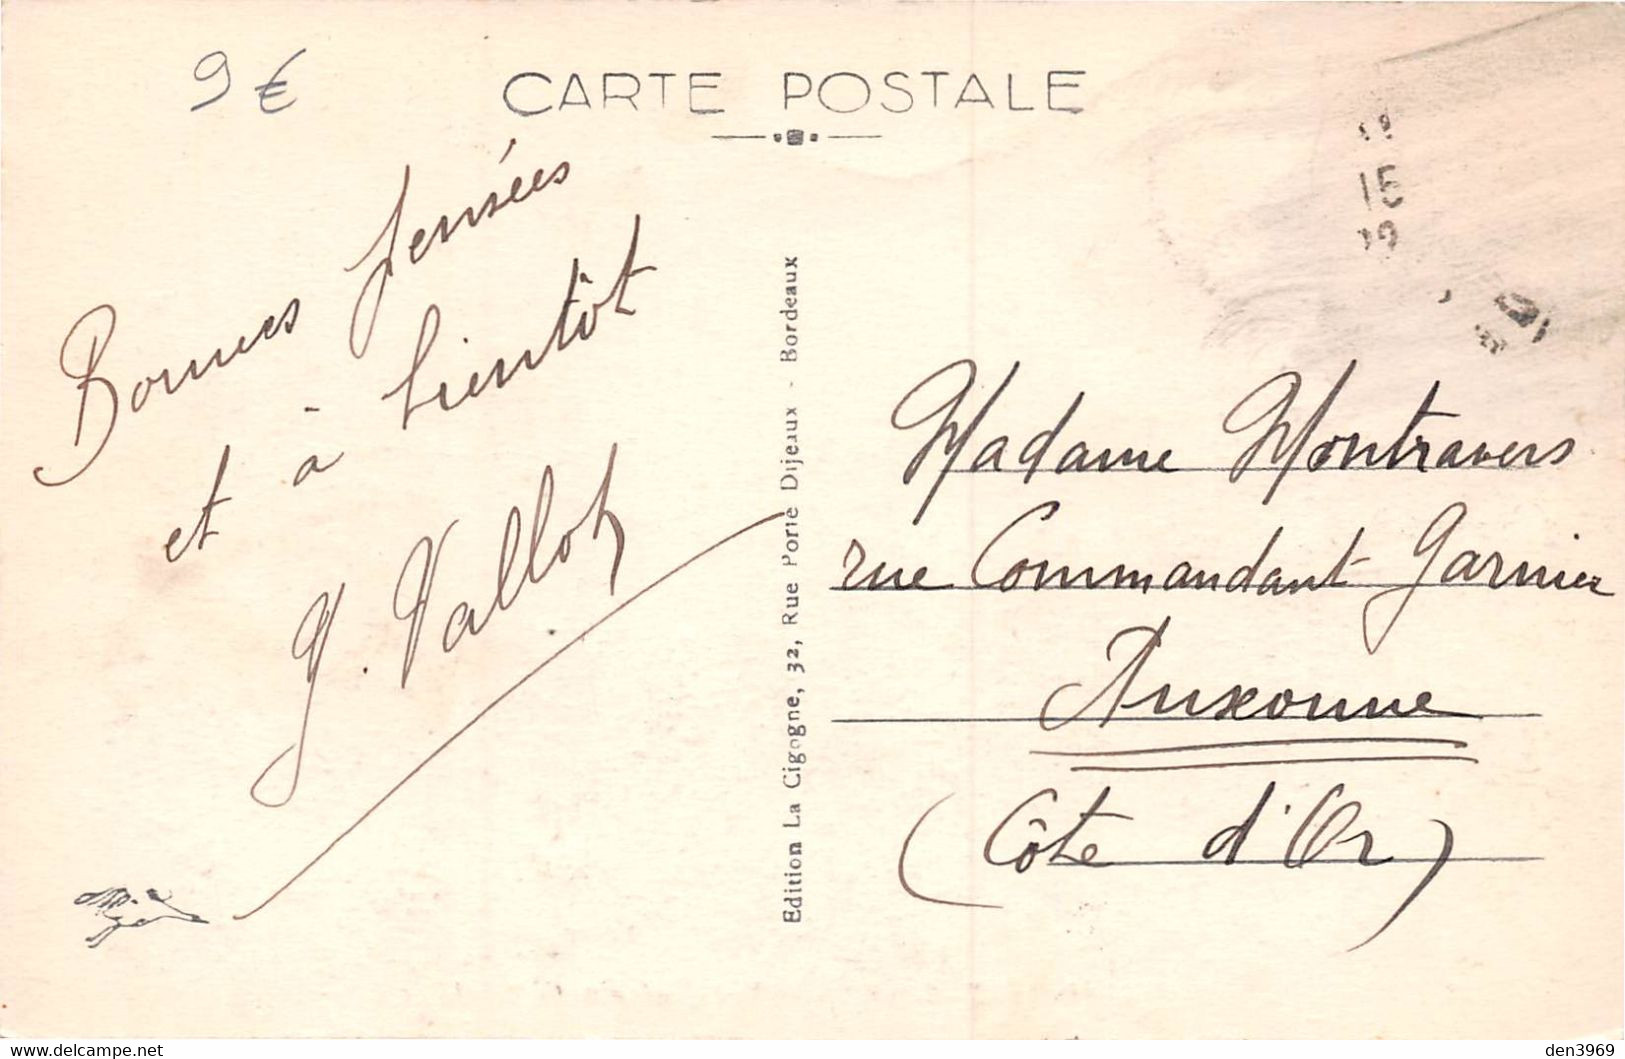 9 €
CARTE POSTALE
Bonnes pensées
et à bientôt
Y. Valloh
Edition La Cigogne, 32, Rue Porte Dijeaux - Bordeaux
15
Madame Montravers
rue Commandant Garnier
Auxonne
(Côte d'Or)
www.delcampe.net
den3969